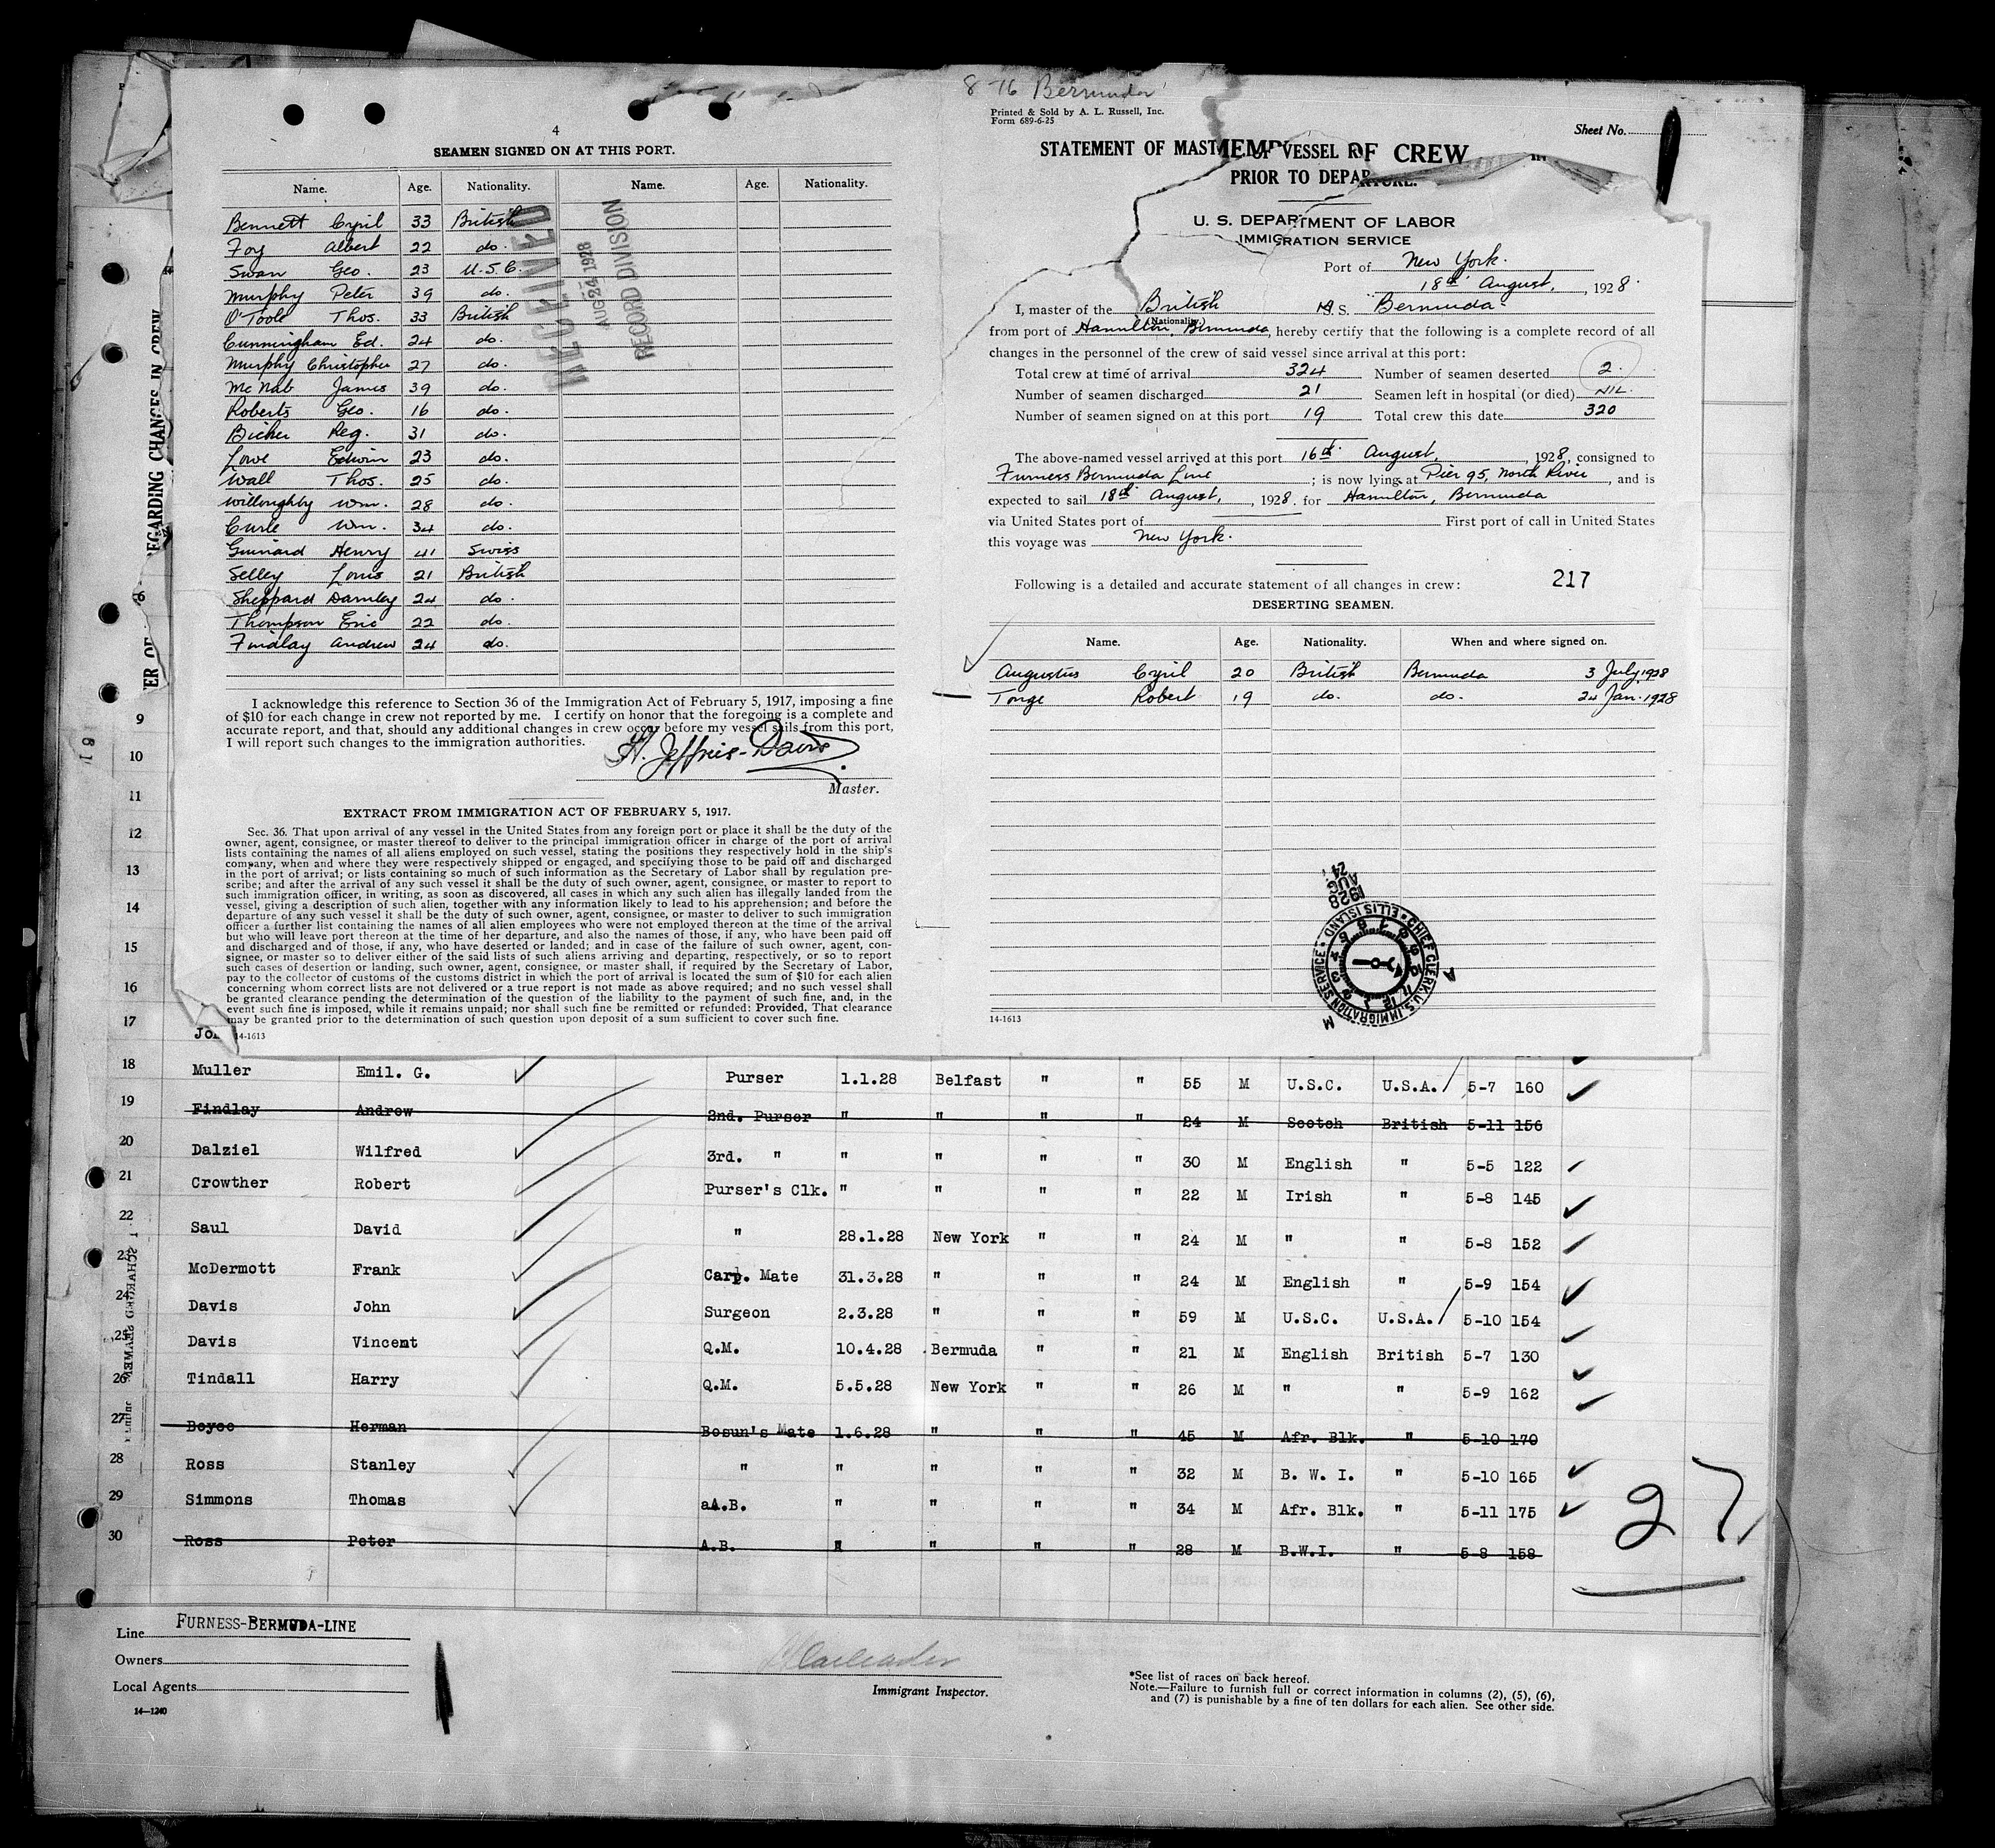 8-16 Bermuda
4
SEAMEN SIGNED ON AT THIS PORT.
Name. Age. Nationality. Name. Age. Nationality.
Bennett Cyril 33 British
Foy Albert 22 do.
Swan Geo. 23 U.S.C.
Murphy Peter 39 do.
O'Toole Thos. 33 British
Cunningham Ed. 24 do.
Murphy Christopher 27 do.
McNab James 39 do.
Roberts Geo. 16 do.
Bicher Reg. 31 do.
Lowe Edwin 23 do.
Wall Thos. 25 do.
Willoughby Wm. 28 do.
Curle Wm. 34 do.
Guinard Henry 41 Swiss
Selley Louis 21 British
Sheppard Darnley 24 do.
Thompson Eric 22 do.
Findlay Andrew 24 do.
RECEIVED
AUG 24 1928
RECORD DIVISION
I acknowledge this reference to Section 36 of the Immigration Act of February 5, 1917, imposing a fine
of $10 for each change in crew not reported by me. I certify on honor that the foregoing is a complete and
accurate report, and that, should any additional changes in crew occur before my vessel sails from this port,
I will report such changes to the immigration authorities.
H. Jeffries-Davis
Master.
EXTRACT FROM IMMIGRATION ACT OF FEBRUARY 5, 1917.
Sec. 36. That upon arrival of any vessel in the United States from any foreign port or place it shall be the duty of the
owner, agent, consignee, or master thereof to deliver to the principal immigration officer in charge of the port of arrival
lists containing the names of all aliens employed on such vessel, stating the positions they respectively hold in the ship's
company, when and where they were respectively shipped or engaged, and specifying those to be paid off and discharged
in the port of arrival; or lists containing so much of such information as the Secretary of Labor shall by regulation pre-
scribe; and after the arrival of any such vessel it shall be the duty of such owner, agent, consignee, or master to report to
such immigration officer, in writing, as soon as discovered, all cases in which any such alien has illegally landed from the
vessel, giving a description of such alien, together with any information likely to lead to his apprehension; and before the
departure of any such vessel it shall be the duty of such owner, agent, consignee, or master to deliver to such immigration
officer a further list containing the names of all alien employees who were not employed thereon at the time of the arrival
but who will leave port thereon at the time of her departure, and also the names of those, if any, who have been paid off
and discharged and of those, if any, who have deserted or landed; and in case of the failure of such owner, agent, con-
signee, or master so to deliver either of the said lists of such aliens arriving and departing, respectively, or so to report
such cases of desertion or landing, such owner, agent, consignee, or master shall, if required by the Secretary of Labor,
pay to the collector of customs of the customs district in which the port of arrival is located the sum of $10 for each alien
concerning whom correct lists are not delivered or a true report is not made as above required; and no such vessel shall
be granted clearance pending the determination of the question of the liability to the payment of such fine, and, in the
event such fine is imposed, while it remains unpaid; nor shall such fine be remitted or refunded: Provided, That clearance
may be granted prior to the determination of such question upon deposit of a sum sufficient to cover such fine.
14-1613
Printed & Sold by A. L. Russell, Inc.
Form 689-6-25
Sheet No.
STATEMENT OF MAST OF VESSEL
OF CREW
PRIOR TO DEPARTURE.
U. S. DEPARTMENT OF LABOR
IMMIGRATION SERVICE
Port of New York.
18th August, , 1928.
I, master of the British M S. "Bermuda"
(Nationality)
from port of Hamilton, Bermuda, hereby certify that the following is a complete record of all
changes in the personnel of the crew of said vessel since arrival at this port:
Total crew at time of arrival 324 Number of seamen deserted 2.
Number of seamen discharged 21 Seamen left in hospital (or died) NIL.
Number of seamen signed on at this port 19 Total crew this date 320
The above-named vessel arrived at this port 16th August, , 1928, consigned to
Furness Bermuda Line ; is now lying at Pier 95, North River , and is
expected to sail 18th August, , 1928, for Hamilton, Bermuda
via United States port of First port of call in United States
this voyage was New York.
Following is a detailed and accurate statement of all changes in crew: 217
DESERTING SEAMEN.
Name. Age. Nationality. When and where signed on.
Augustus Cyril 20 British Bermuda 3 July, 1928
Tonge Robert 19 do. do. 24 Jan. 1928
1928 AUG 24
CHIEF CLERK, U.S. IMMIGRATION SERVICE ELLIS ISLAND
14-1613
REGARDING CHANGES IN CREW
9
10
11
12
13
14
15
16
17
18 Muller Emil. G. Purser 1.1.28 Belfast " " 55 M U.S.C. U.S.A. 5-7 160
19 Findlay Andrew 2nd. Purser " " " " 24 M Scotch British 5-11 156
20 Dalziel Wilfred 3rd. " " " " " 30 M English " 5-5 122
21 Crowther Robert Purser's Clk. " " " " 22 M Irish " 5-8 145
22 Saul David " 28.1.28 New York " " 24 M " " 5-8 152
23 McDermott Frank Carp. Mate 31.3.28 " " " 24 M English " 5-9 154
24 Davis John Surgeon 2.3.28 " " " 59 M U.S.C. U.S.A. 5-10 154
25 Davis Vincent Q.M. 10.4.28 Bermuda " " 21 M English British 5-7 130
26 Tindall Harry Q.M. 5.5.28 New York " " 26 M " " 5-9 162
27 Boyce Herman Bosun's Mate 1.6.28 " " " 45 M Afr. Blk. " 5-10 170
28 Ross Stanley " " " " " 32 M B. W. I. " 5-10 165
29 Simmons Thomas aA.B. " " " " 34 M Afr. Blk. " 5-11 175
30 Ross Peter A.B. " " " " 28 M B.W.I. " 5-8 158
27
Line FURNESS-BERMUDA-LINE
Owners
Local Agents
14-1240
Immigrant Inspector.
*See list of races on back hereof.
Note.—Failure to furnish full or correct information in columns (2), (5), (6),
and (7) is punishable by a fine of ten dollars for each alien. See other side.